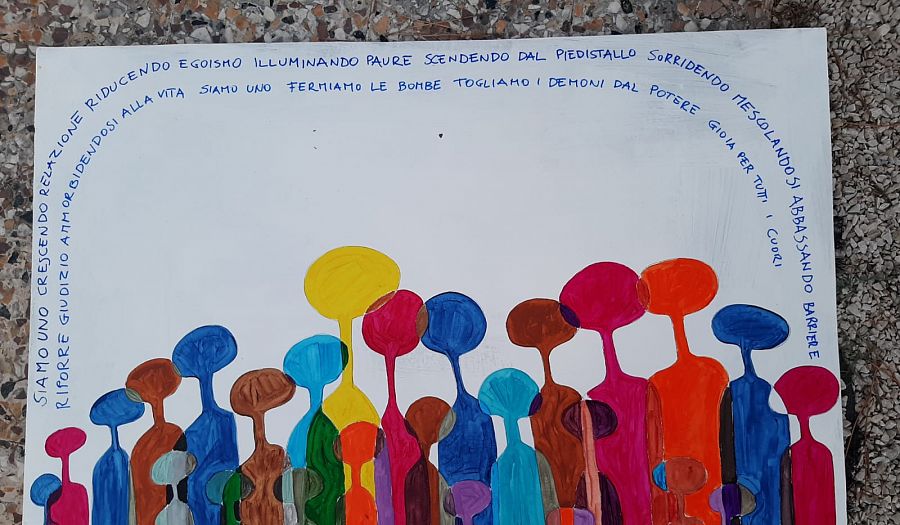 SIAMO UNO CRESCENDO RELAZIONE RIDUCENDO EGOISMO ILLUMINANDO PAURE SCENDENDO DAL PIEDISTALLO SORRIDENDO MESCOLANDOSI ABBASSANDO BARRIERE
RIPORRE GIUDIZIO AMMORBIDENDOSI ALLA VITA SIAMO UNO FERMIAMO LE BOMBE TOGLIAMO I DEMONI DAL POTERE GIOIA PER TUTTI I CUORI